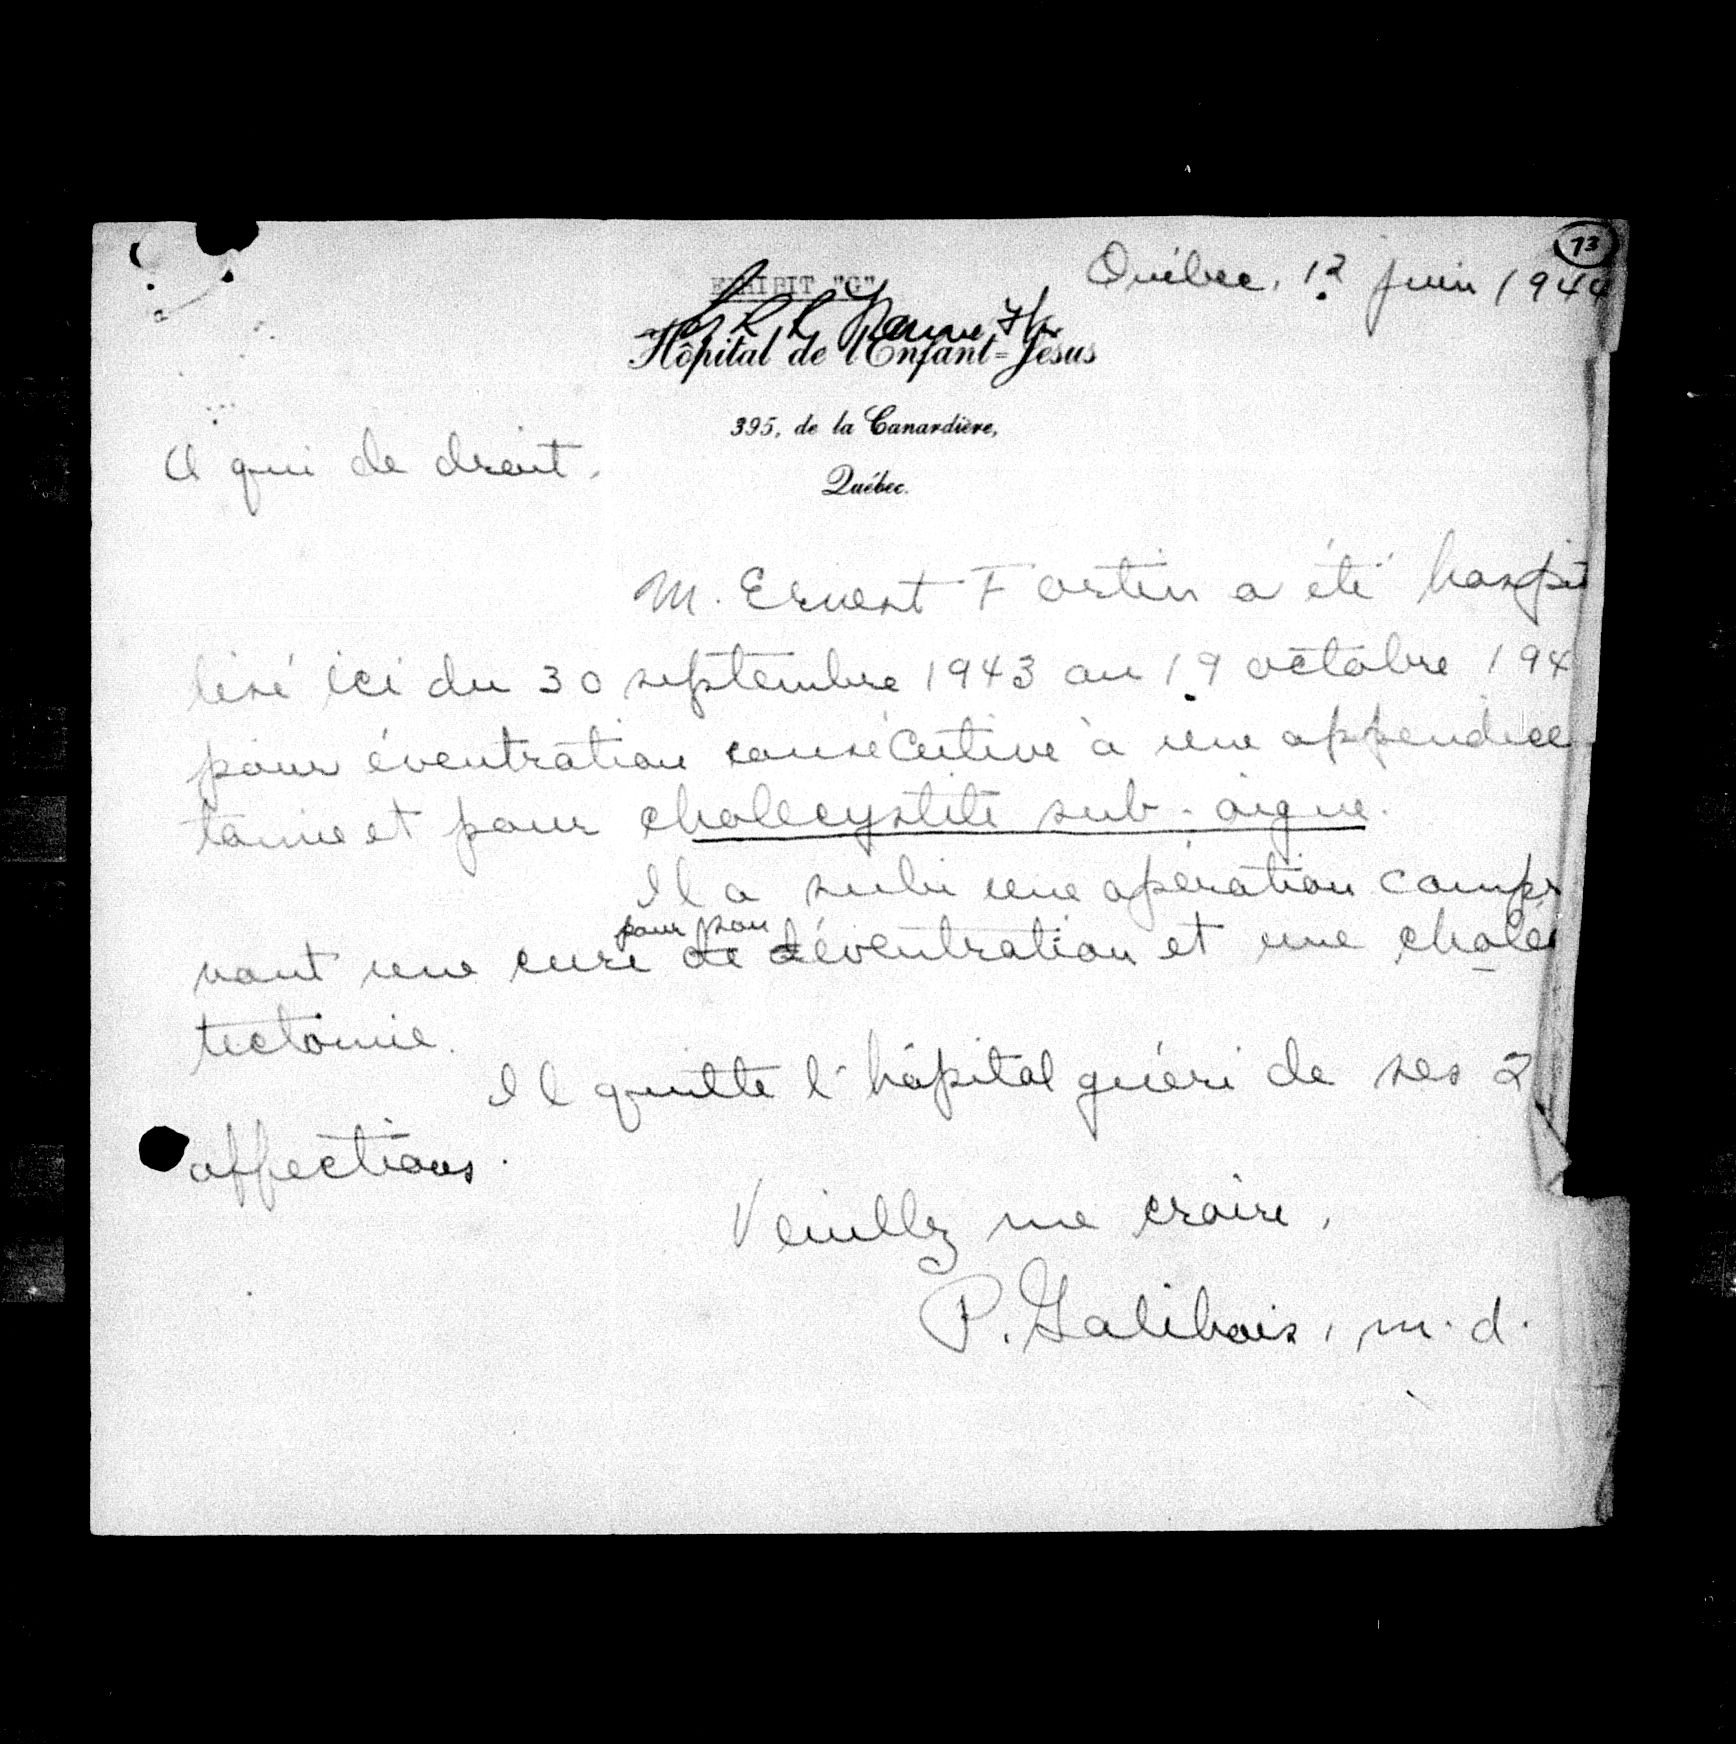 73
Québec, 12 juin 1944
EXHIBIT "G"
Hôpital de l'Enfant-Jésus
395, de la Canardière,
Québec.
A qui de droit,
M. Ernest Fortin a été hospit
lisé ici du 30 septembre 1943 au 19 octobre 194
pour éventration consécutive à une appendicec
tomie et pour cholecystite sub-aigue.
Il a subi une opération compr
pour son
nant une cure de d'éventration et une cholécys
tectomie.
Il quitte l'hôpital guéri de ses 2
affections.
Veuillez me croire,
P. Galibois, m.d.